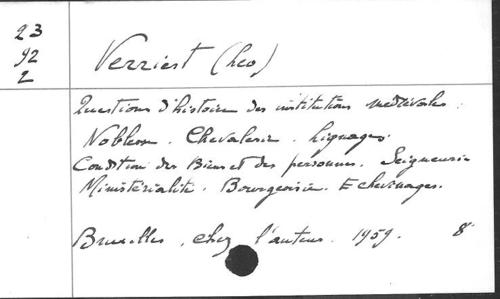 23
92
2
Verriest (Léo)
Questions d'histoire des institutions médiévales :
Noblesse. Chevalerie. Lignages.
Condition des Biens et des personnes. Seigneurie
Ministérialité. Bourgeoisie. Echevinages.
Bruxelles, chez l'auteur. 1959. 8°